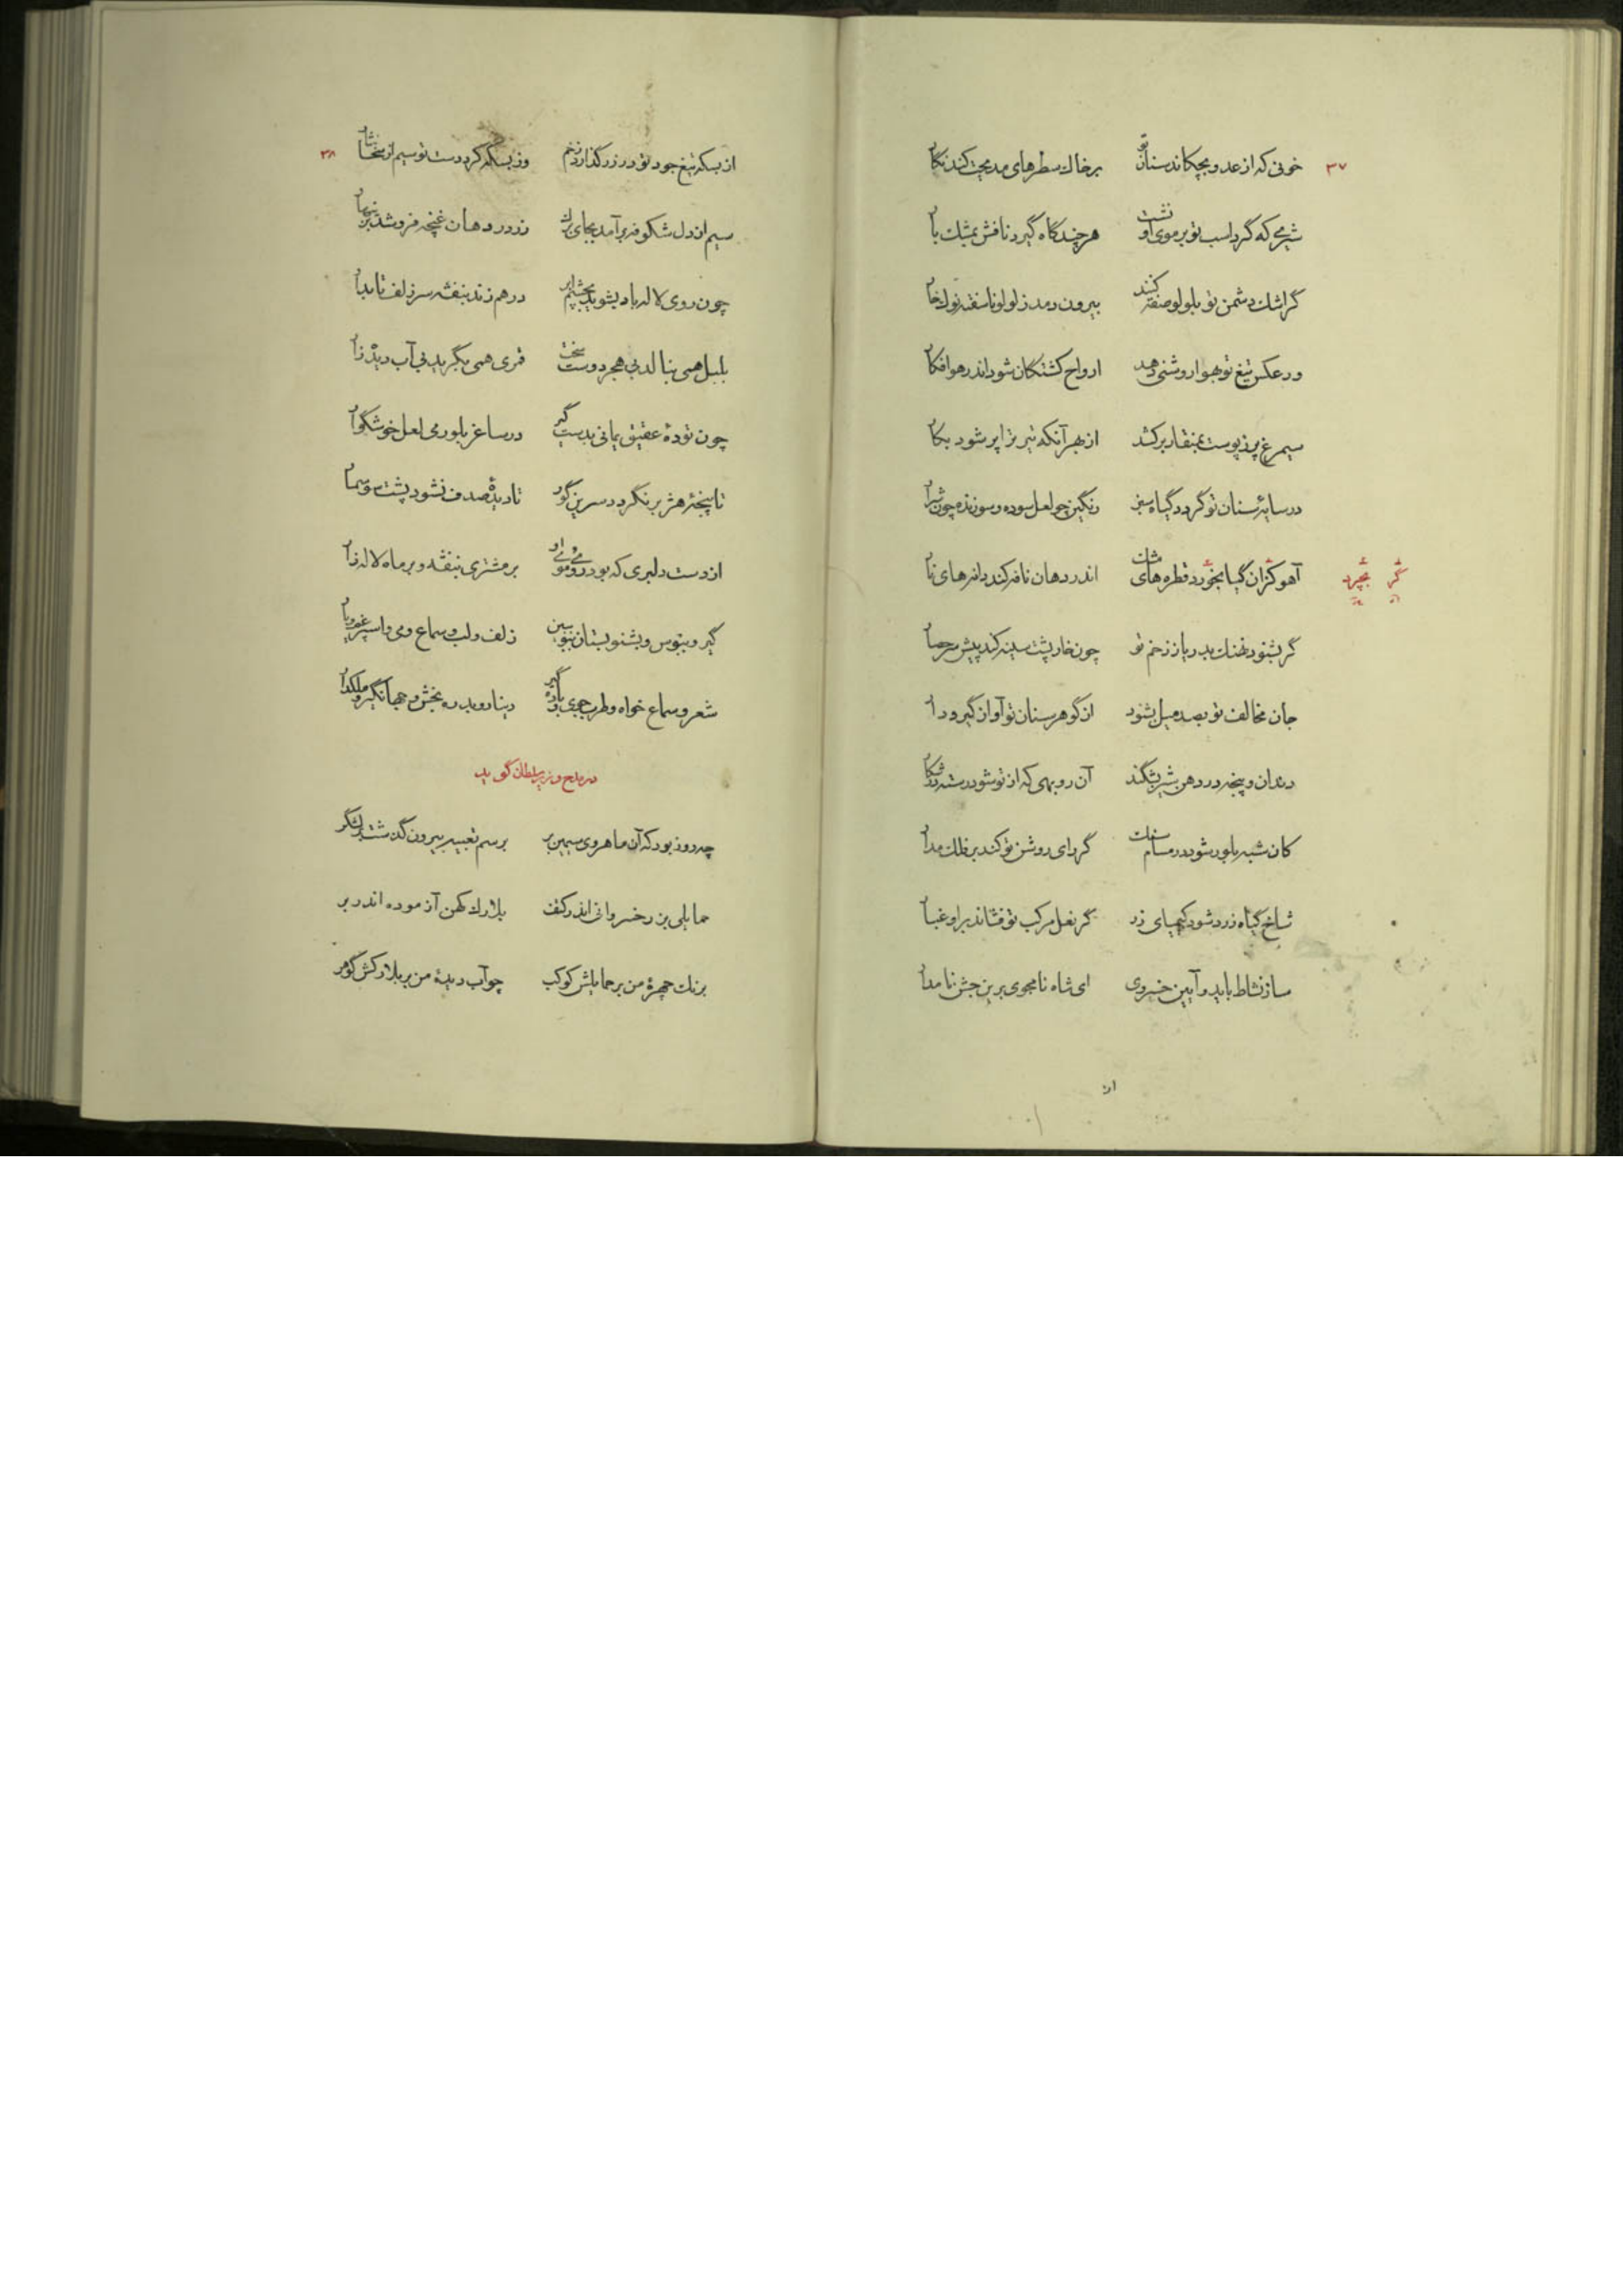 ۳۷
خونی که از عدو بچکاند سنان تو    بر خاک سطرهای مدیحت کند نگار
شیری که گرد اسب تو بر موی او نشست    هر چند گاه گیرد نافش بمشک بار
گر اشک دشمن تو بلولو صفت کنند    بیرون دمد ز لولو ناسفته نوک خار
ور عکس تیغ تو بهوا روشنی دهد    ارواح کشتگان شود اندر هوا فکار
سیمرغ پر ز پوست بمنقار برکشد    از بهر آنکه تیر ترا پر شود بکار
در سایهٔ سنان تو گر دد گیاه سبز    رنگین چو لعل سوده و سوزنده چون شرار
آهو کزان گیا بخورد قطره‌های مشک    اندر دهان نافه کند دانه‌های نار
گر    بچرد
گر بشنود نهنگ بدریا ز زخم تو    چون خارپشت سینه کند پیش سر حصار
جان مخالف تو بصد میل بشنود    از گوهر سنان تو آواز گیر و دار
دندان و پنجه در دهن شیر بشکند    آن روبهی که از تو شود رسته در شکار
کان شبه بلور شود در مسام سنگ    گر رای روشن تو کند بر فلک مدار
شاخ گیاه زرد شود کیمیای زر    گر نعل مرکب تو فشاند بر او غبار
ساز نشاط باید و آیین خسروی    ای شاه نامجوی برین جشن نامدار
از
۳۸
از بسکه تیغ جود تو در زر گذارد زخم    وز بسکه کرد دست تو سیم از سخا نثار
سیم از دل شکوفه برآمد بجای برگ    زر در دهان غنچه فرو شد بزینهار
چون روی لاله باد بشوید بچشم ابر    در هم زند بنفشه سر زلف تابدار
بلبل همی بنالد بی هجر دوست سخت    قمری همی بگرید بی آب دیده زار
چون تودهٔ عقیق یمانی بدست گیر    در ساغر بلور می لعل خوشگوار
تا پنجهٔ هژبر نگردد سرین گور    تا دیدهٔ صدف نشود پشت سوسمار
از دست دلبری که بود روی و موی او    بر مشتری بنفشه و بر ماه لاله‌زار
گیر و ببوس و بشنو بستان ببو ببین    زلف و لب و سماع و می و اسپرغم و یار
شعر و سماع خواه و طرب جوی و باده گیر    دینار و بدره بخش و جهانگیر و ملکدار
در مدح وزیر سلطان گوید
چه روز بود که آن ماهروی سیمین بر    برسم تعبیه بیرون گذشت بر لشکر
حمایلی بزر خسروانی اندر کتف    بلارک کهن آزموده اندر بر
برنگ چهرهٔ من بر حمایلش کوکب    چو آب دیدهٔ من بر بلارکش گوهر